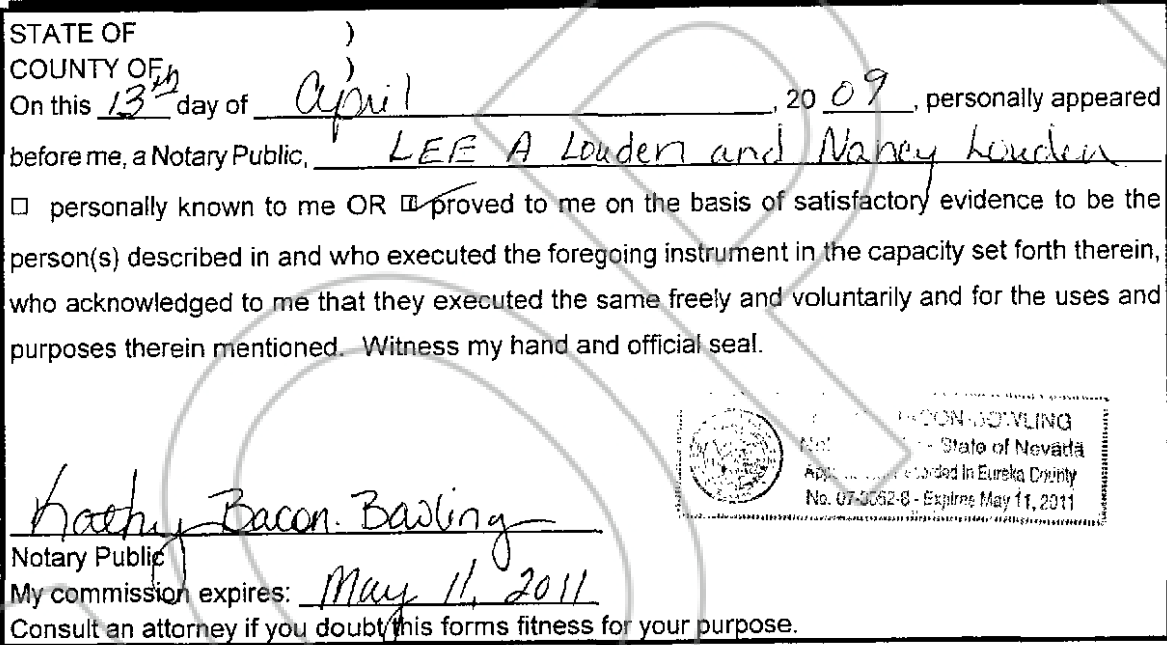 STATE OF )
COUNTY OF )
On this 13th day of April , 20 09 , personally appeared
before me, a Notary Public, LEE A Louden and Nancy Louden
☐ personally known to me OR ☑ proved to me on the basis of satisfactory evidence to be the
person(s) described in and who executed the foregoing instrument in the capacity set forth therein,
who acknowledged to me that they executed the same freely and voluntarily and for the uses and
purposes therein mentioned. Witness my hand and official seal.
State of Nevada
in Eureka County
Expires May 11, 2011
Kathy Bacon-Bowling
Notary Public
My commission expires: May 11, 2011
Consult an attorney if you doubt this forms fitness for your purpose.